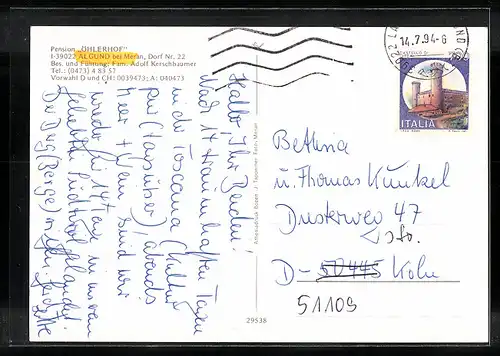 Pension "ÖHLERHOF"
I-39022 ALGUND bei Meran, Dorf Nr. 22
Bes. und Führung: Fam. Adolf Kerschbaumer
Tel.: (0473) 4 83 57
Vorwahl D und CH: 0039473; A: 040473
14.7.94-6
ITALIA
Hallo, Ihr Beiden!
Nach 14 traumhaften Tagen
in der Toscana (Kultur
pur (tagsüber) / abends
Meer + Wein) sind wir
wieder für 14 Tage in unserem
geliebten Südtirol gelandet.
Bettina
u. Thomas Kunkel
Dusterweg 47
D- 50445 Köln
51109
29538